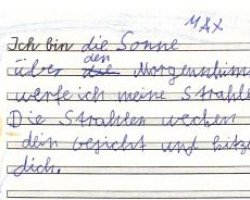 MAX
Ich bin die Sonne
den
über die Morgenhim
werfe ich meine Strahle
Die Strahlen wecken
dein gesicht und kitze
dich.